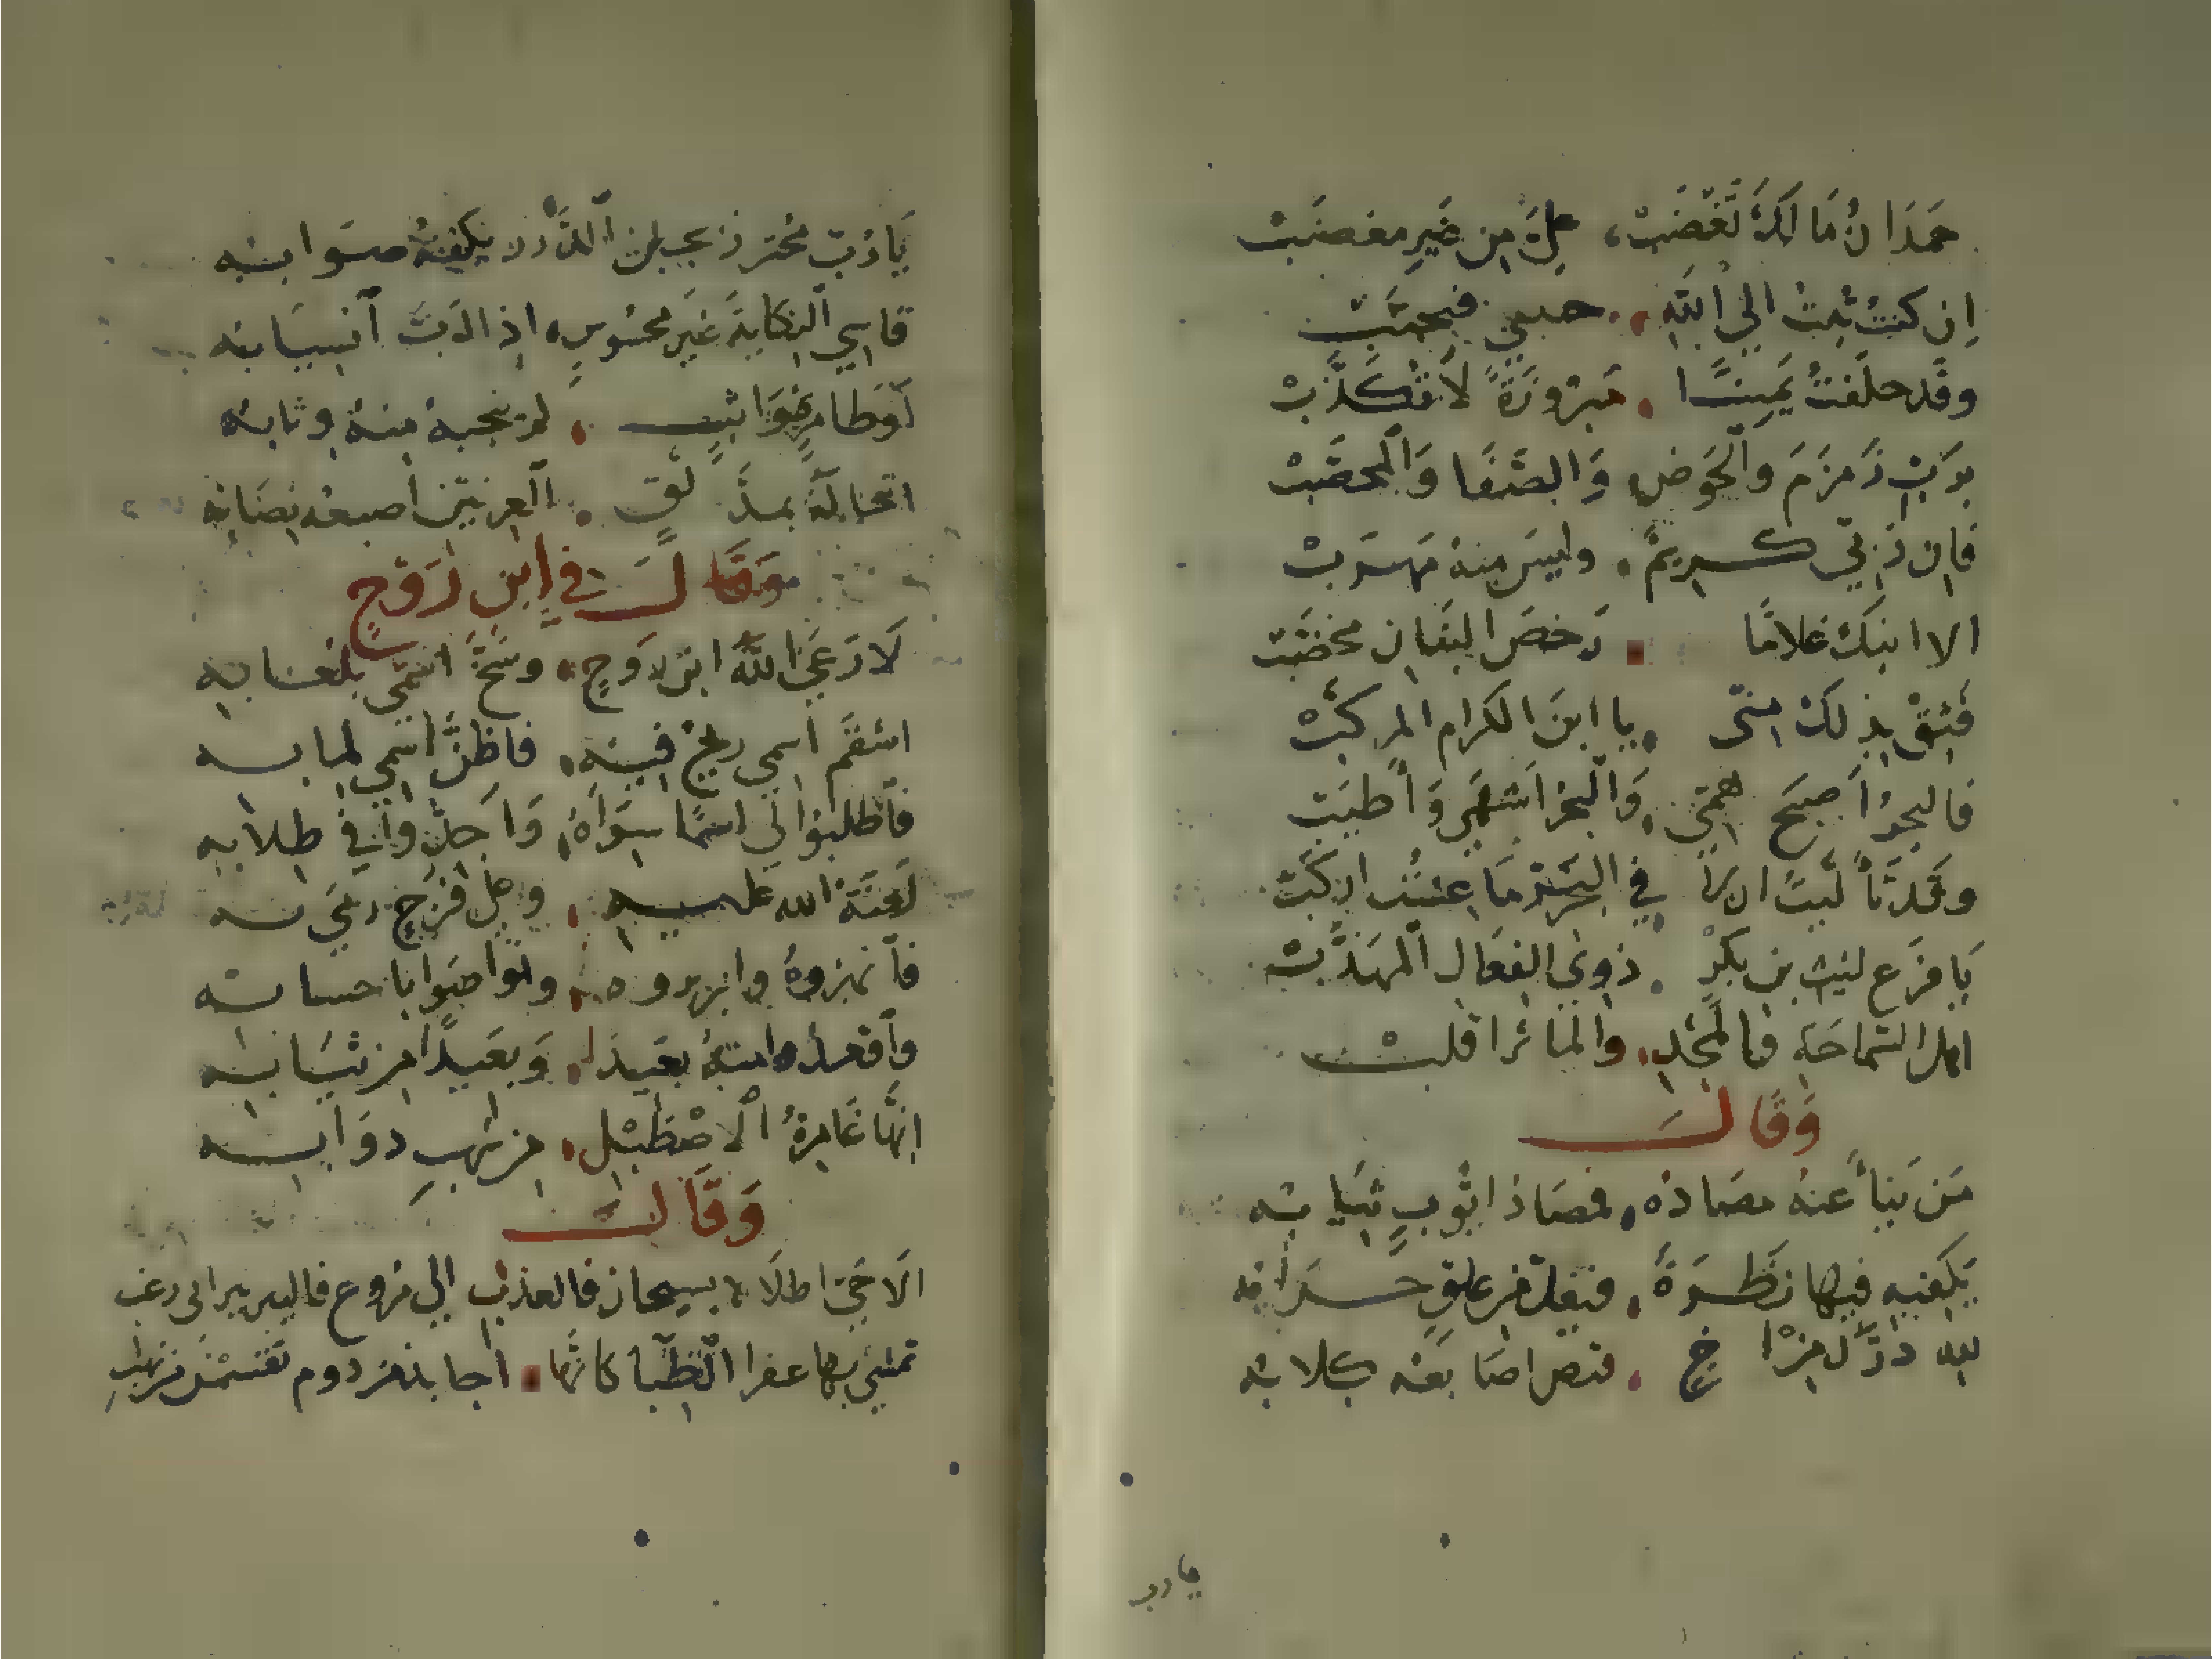 حمدان مَا لَكَ تَغْضَبْ، عليّ من غَيرِ مغضَبْ
اِن كنتُ تُبتُ الي اللّهِ . حسبي فحسبْ
وقَد حلَفتُ يَمِينًا . مَبرُورَةً لَا تُكَذَّبْ
بِرَبِّ زَمزَمَ والحَوضِ وَالصَّفَا وَالمحصَّبْ
فاِن رَبّي كَريمٌ . وليسَ مِنهُ مَهرَبْ
الا انيكَ غلامًا . رَخصَ البَنَان مخضَّبْ
فَثِقْ بِذلكَ منّي . يا ابنَ الكرام المركَّبْ
فالبحرُ اَصبَحَ همّي . وَالبحرُ اَشهَي وَاَطيَبْ
في البَحرِ مَا عشتُ اركَبْ
يَا فَرعَ ليثِ بن بكْرٍ . ذوي الفعَال المهَذَّبْ
اهل السّماحَةِ فالمَجْدِ . والمآثر اقلبْ
وَقَالَ
مَن يَنأ عنهُ مصَادُه . فمصَادُ ايّوبٍ ثيَابُه
يَكفيهِ فيها نَظرَةٌ . فتعلّ من علقٍ حرَابُه
للهِ دَرُّكَ مِنْ اخٍ . قنص اصَابعُه كلابُه
يارب
يَا رُبّ محترزٍ بجيب الرّدن يكنفُه صوَابُه
فاشي النكايَة غَيرِ محسُوسٍ اِذَا دَبَّ انسيَابُه
اَو طامريٍ وَاثبٍ . لم ينجهِ مِنهُ وثابُه
بمذَلّقِ . الغربَين اصبعُه نِصَابُه
وَقَالَ في اِبن رَوْحٍ
لَا رَعَي اللّهُ ابن رَوحٍ . وسّخَ اسمي بلعَابِه
اسقَمَ اسمي ريحُ فيهِ . فاظنّ اسمي لما به
فَاطلبُوا لي اسمًا سوَاهُ . وَاَجِدّوا في طلابِه
لَعنَةُ الله عليه . وعلي
فانهزُوهُ وازبروه . وتواصَوا باجتنابه
وَاقعدُوا منهُ بعيدًا . وَبعَيدًا من ثيَابِه
اِنّها عَامِرةُ الاصْطَبْلِ . من شهبِ دوَابِه
وَقَالَ
الَا حَيّ اطلَالا بسيحان فالعذبِ الي مرع فالبير بير ابى رغب
تمشّي بها عفر الظّبا كانّها . اخاريد من روم تقسّمن في نهبِ